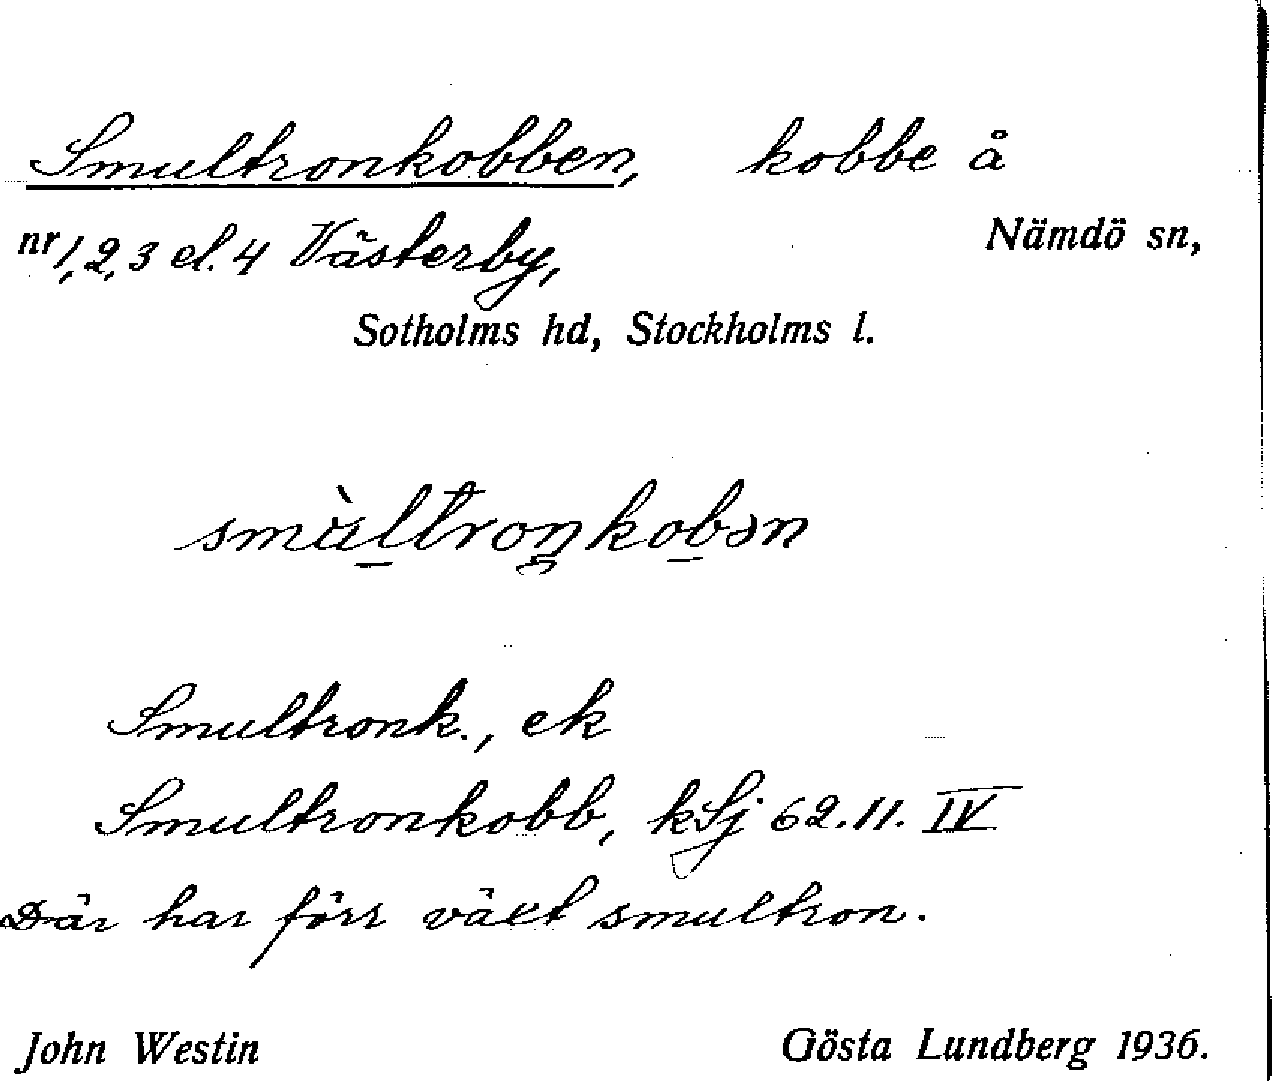 Smultronkobben, kobbe å
nr 1, 2, 3 el. 4 Västerby, Nämdö sn,
Sotholms hd, Stockholms l.
smùltroŋkobən
Smultronk., ek
Smultronkobb, kSj 62.11. IV
Där har förr växt smultron.
John Westin Gösta Lundberg 1936.